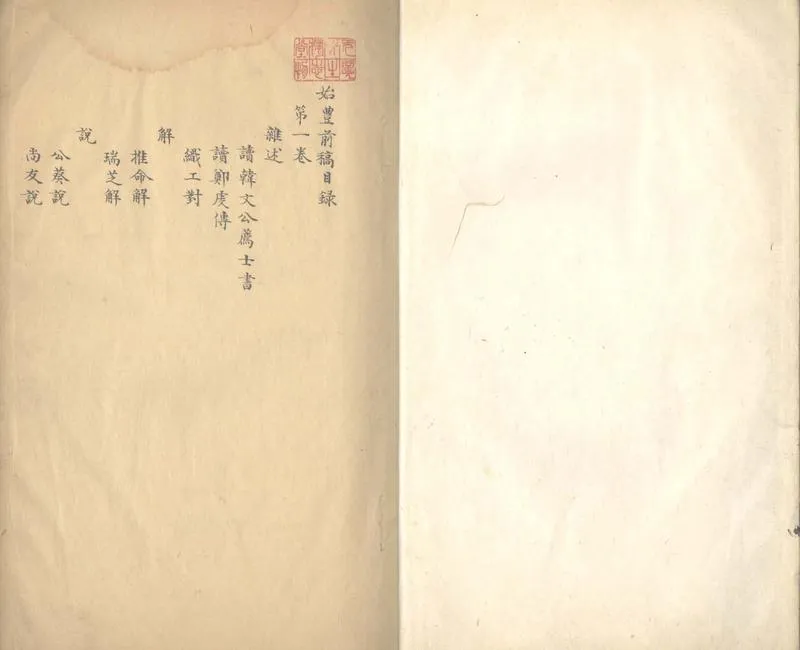 始豐前稿目録
第一卷
雜述
讀韓文公薦士書
讀鄭虔傳
織工對
解
推命解
瑞芝解
說
公葵說
尚友說